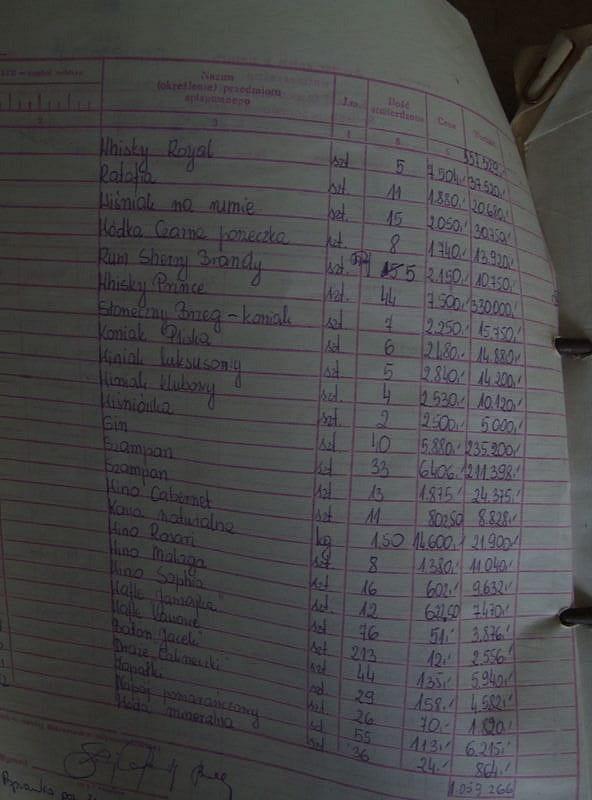 Nazwa (określenie) przedmiotu spisywanego J.m. Ilość stwierdzona Cena
3 4 5 6
157.529,-
Whisky Royal szt 5 7.504,- 37.520,-
Ratafia szt. 11 1.880,- 20.680,-
Wiśniak na rumie szt. 15 2.050,- 30.750,-
Wódka Czarna porzeczka szt. 8 1.740,- 13.920,-
Rum Sherry Brandy szt. 5 2.150,- 10.750,-
Whisky Prince szt. 44 7.500,- 330.000,-
Słoneczny Brzeg - koniak szt 7 2.250,- 15.750,-
Koniak Pliska szt 6 2.480,- 14.880,-
Winiak luksusowy szt 5 2.840,- 14.200,-
Winiak klubowy szt. 4 2.530,- 10.120,-
Wiśniówka szt. 2 2.500,- 5.000,-
Gin szt 40 5.880,- 235.200,-
Szampan szt 33 6406,- 211.398,-
Szampan szt 13 1.875,- 24.375,-
Wino Cabernet szt 11 802,50 8.828,-
Kawa naturalna kg 1,50 14.600,- 21.900,-
Wino Rosari szt 8 1.380,- 11.040,-
Wino Malaga szt 16 602,- 9.632,-
Wino Sophia szt. 12 622,50 7.470,-
Wafle "Jamajka" szt 76 51,- 3.876,-
Wafle Kawowe szt 213 12,- 2.556,-
Baton Jacek szt 44 135,- 5.940,-
Draże szt 29 158,- 4.582,-
Zapałki szt 26 70,- 1.820,-
Napój pomarańczowy szt 55 113,- 6.215,-
Woda mineralna szt 36 24,- 864,-
1.053.266